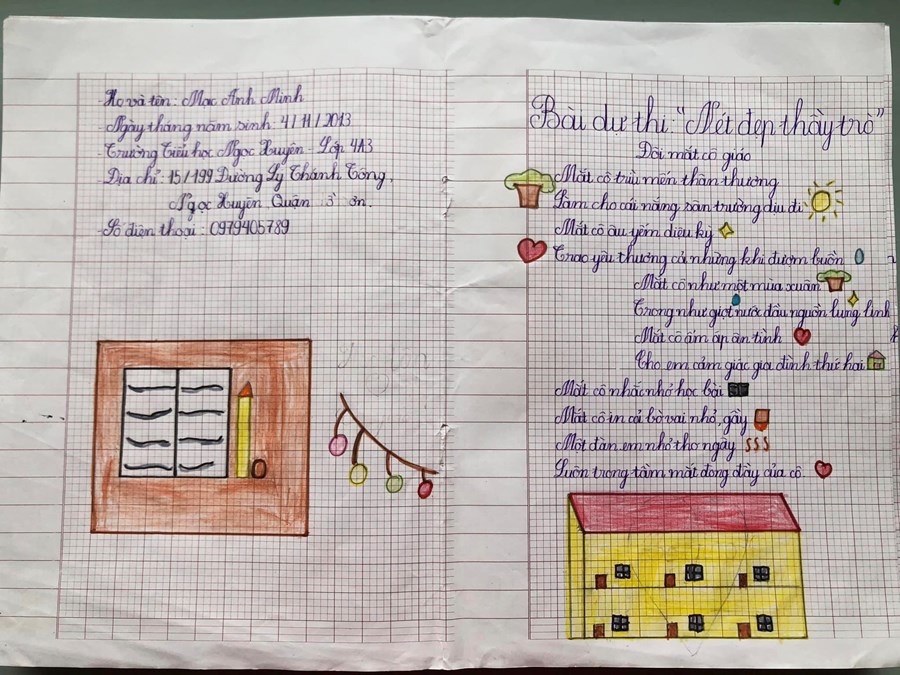 - Họ và tên: Mạc Anh Minh
- Ngày tháng năm sinh: 4/11/2013
- Trường Tiểu học Ngọc Xuyên - Lớp 4A3
- Địa chỉ: 15/199 Đường Lý Thánh Tông,
Ngọc Xuyên Quận ơn.
- Số điện thoại: 0979405789
Bài dự thi: "Nét đẹp thầy trò"
Đôi mắt cô giáo
Mắt cô trìu mến thân thương
Làm cho cái nắng sân trường dịu đi
Mắt cô âu yếm diệu kỳ
Trao yêu thương cả những khi đượm buồn
Mắt cô như một mùa xuân
Trong như giọt nước đầu nguồn lung linh
Mắt cô ấm áp ân tình
Cho em cảm giác gia đình thứ hai
Mắt cô nhắc nhở học bài
Mắt cô in cả bờ vai nhỏ, gầy
Một đàn em nhỏ thơ ngây
Luôn trong tầm mắt đong đầy của cô.